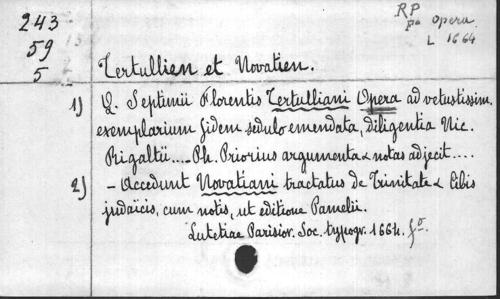 243
59
5
RP
pa opera
L 1664
Tertullien et Novatien.
1) Q. Septimii Florentis Tertulliani Opera ad vetustissim.
exemplarium fidem sedulo emendata, diligentia Nic.
Rigaltii.... Ph. Priorius argumenta & notas adjecit....
2) - Accedunt Novatiani tractatus de Trinitate & Cibis
judaïcis, cum notis, ut editione Pamelii.
Lutetiae Parisior. Soc. typogr. 1664. fo.